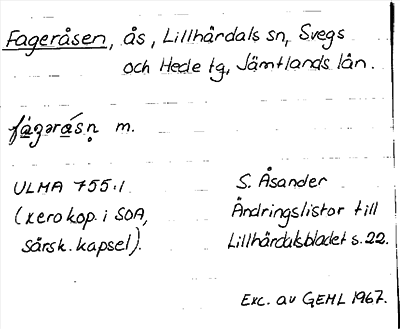 Fageråsen, ås, Lillhärdals sn, Svegs
och Hede tg, Jämtlands län.
fágəråsn̥ m.
ULMA 755:1
(xerokop. i SOA,
särsk. kapsel).
S. Åsander
Ändringslistor till
Lillhärdalsbladet s. 22.
Exc. av GEHL 1967.